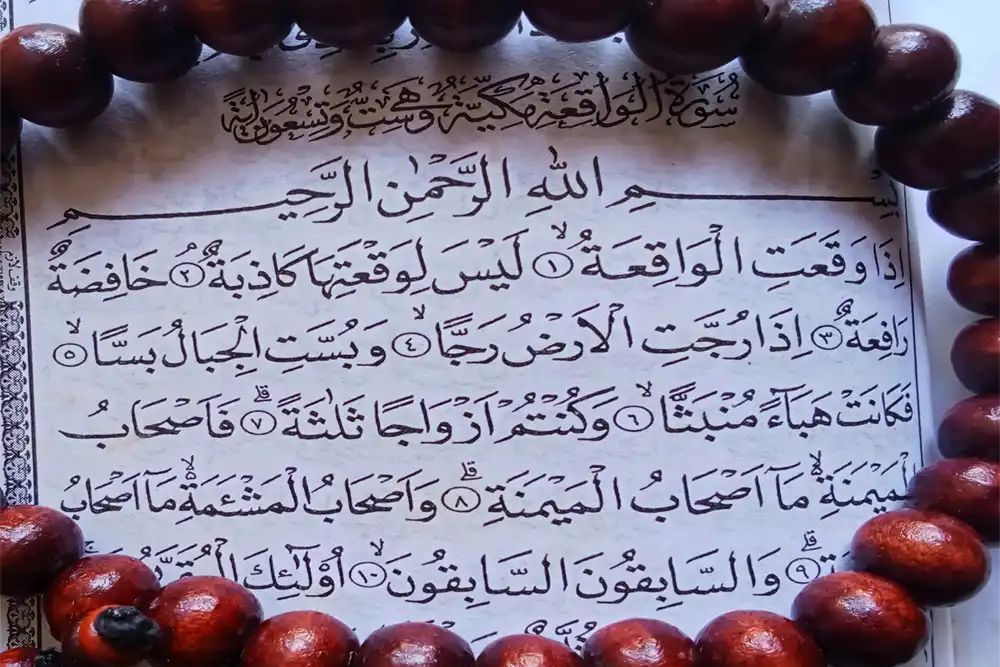 سُورَةُ الْوَاقِعَةِ مَكِّيَّةٌ وَهِيَ سِتٌّ وَتِسْعُونَ اٰيَةً
بِسْمِ اللهِ الرَّحْمٰنِ الرَّحِيمِ
اِذَا وَقَعَتِ الْوَاقِعَةُۙ ﴿١﴾ لَيْسَ لِوَقْعَتِهَا كَاذِبَةٌۢ ﴿٢﴾ خَافِضَةٌ
رَافِعَةٌۙ ﴿٣﴾ اِذَا رُجَّتِ الْاَرْضُ رَجًّاۙ ﴿٤﴾ وَبُسَّتِ الْجِبَالُ بَسًّاۙ ﴿٥﴾
فَكَانَتْ هَبَٓاءً مُنْبَثًّاۙ ﴿٦﴾ وَكُنْتُمْ اَزْوَاجًا ثَلٰثَةًۜ ﴿٧﴾ فَاَصْحَابُ
الْمَيْمَنَةِۙ مَٓا اَصْحَابُ الْمَيْمَنَةِۜ ﴿٨﴾ وَاَصْحَابُ الْمَشْـَٔمَةِۙ مَٓا اَصْحَابُ
﴿٩﴾ وَالسَّابِقُونَ السَّابِقُونَۙ ﴿١٠﴾ اُو۬لٰٓئِكَ الْمُقَرَّبُونَ